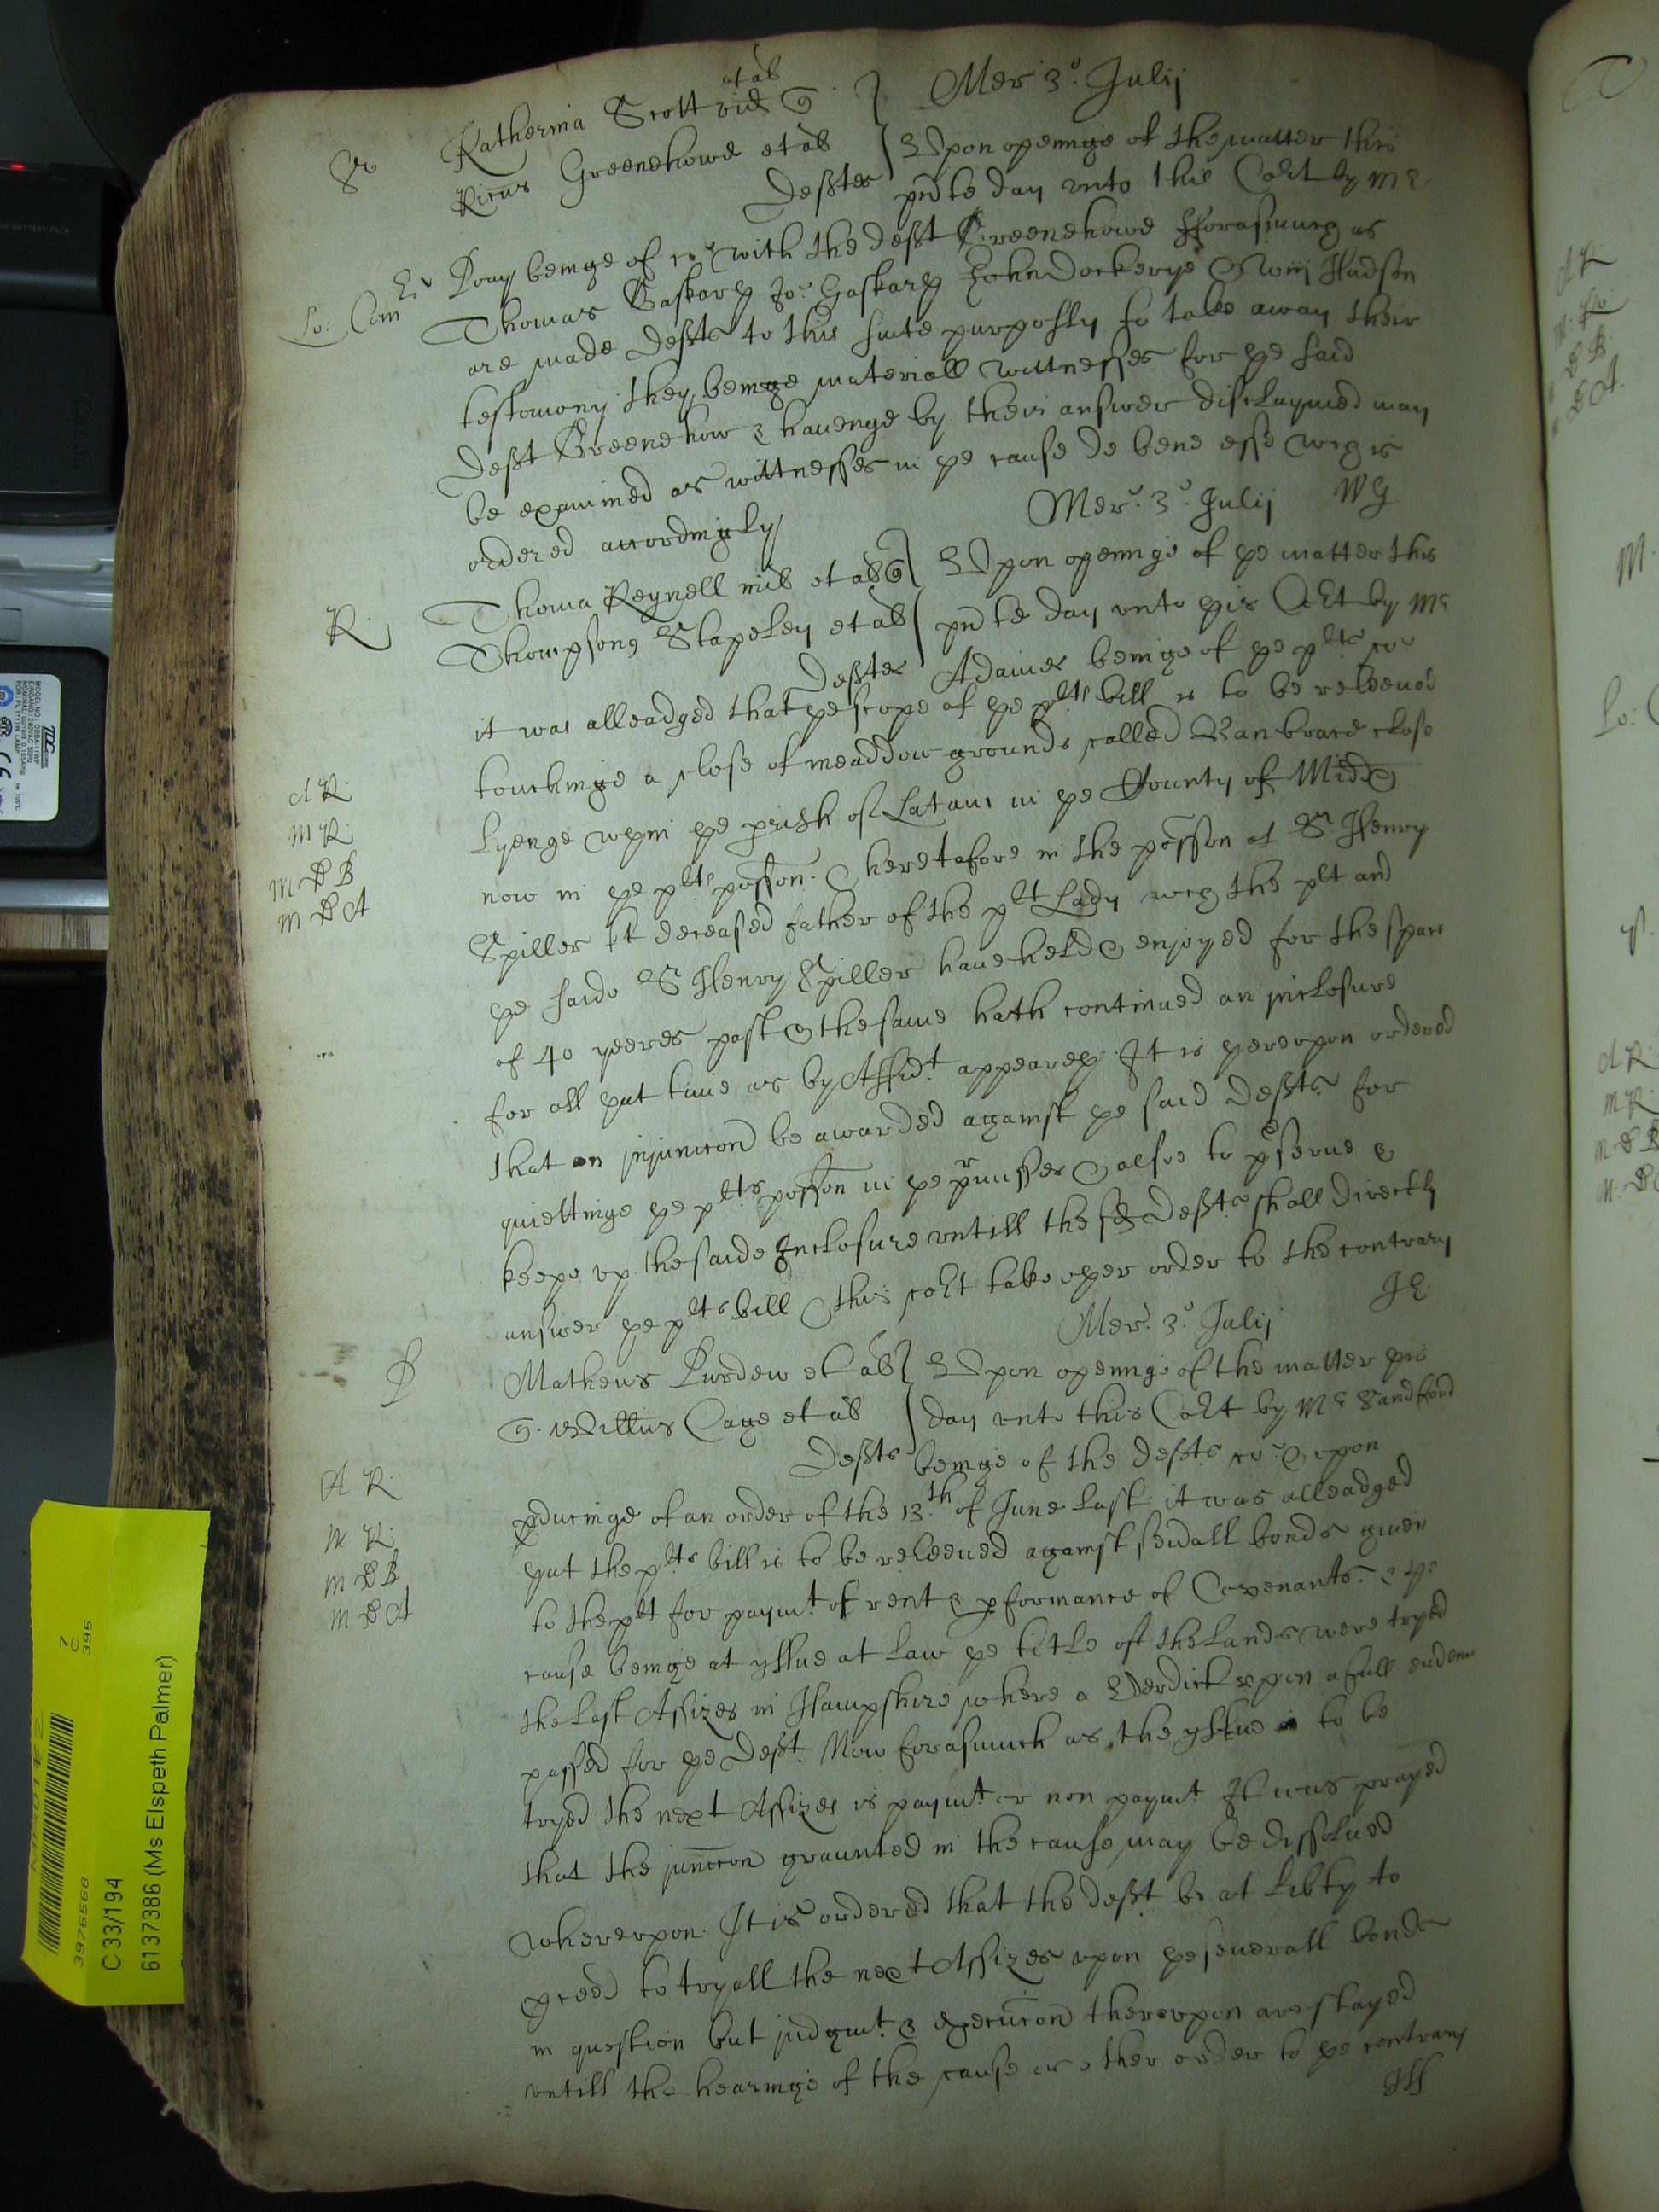 Mer 3o. Julij
Katherina Scott vid et al
Ricus Greenehowe et al
Defts
Upon openinge of the matter this
pnte day unto this Cort by Mr
Lo: Com
Pray beinge of co with the deft Greenehowe fforasmuch as
Thomas Gaskarth Jo: Gaskarth John Dockerye & Wm Hudson
are made defts to this suite purposly to take away their
testomony they beinge materiall wittnesses for ye said
deft Greenehow & havenge by their answer disclaymed may
be examined as wittnesses in ye cause de bene esse wch is
ordered accordingly
Mer. 3o. Julij
R
Thoma Reynell mil et al
Thompson Stapeley et al
Defts
Upon openinge of ye matter this
pnte day unto this Cort by Mr
Adames beinge of ye plts co
it was alleadged that ye scope of ye plts bill is to be releeved
touchinge a close of meaddow grounde called Vanbrace close
Lyenge wthin ye prish of Latam in ye County of Midd
now in ye plts posson & heretofore in the posson of Sr Henry
Spiller kt deceased father of the plt Lady wch the plt and
ye saide Sr Henry Spiller have held & enjoyed for the space
of 40 yeeres past & the same hath continued an inclosure
for all that time as by Affidt appeareth It is thereupon ordered
that an injuncon be awarded against ye said defts for
quiettinge ye plts posson in ye prmisses & alsoe to pserve &
keepe up the saide Inclosure untill the sd defts shall directly
answer ye plts bill & this cort take other order to the contrary
A R
M R
M D B
M D A
Mer. 3o. Julij
P
Matheus Purdew et al
Willus Cage et al
Defts
Upon openinge of the matter this
day unto this Cort by Mr Sandford
beinge of the defts co & upon
pducinge of an order of the 13th of June last it was alleadged
that the plts bill is to be releeved against sevrall bonds given
to the plt for paymt of rent & pformance of Covenants & the
cause beinge at yssue at Law ye title of the Lands were tryed
the last Assizes in Hampshire where a Verdict upon a full
passed for ye Deft. Now forasmuch as the yssue is to be
tryed the next Assizes is paymt or non paymt It was prayed
that the juncon graunted in the cause may be dissolved
whereupon It is ordered that the deft be at libty to
pceed to tryall the next Assizes upon ye severall bonds
in question but judgmt & execucon thereupon are stayed
untill the hearinge of the cause or other order to ye contrary
A R
M R
M D B
M D A
7
C
395
39765568
C 33/194
6137386 (Ms Elspeth Palmer)